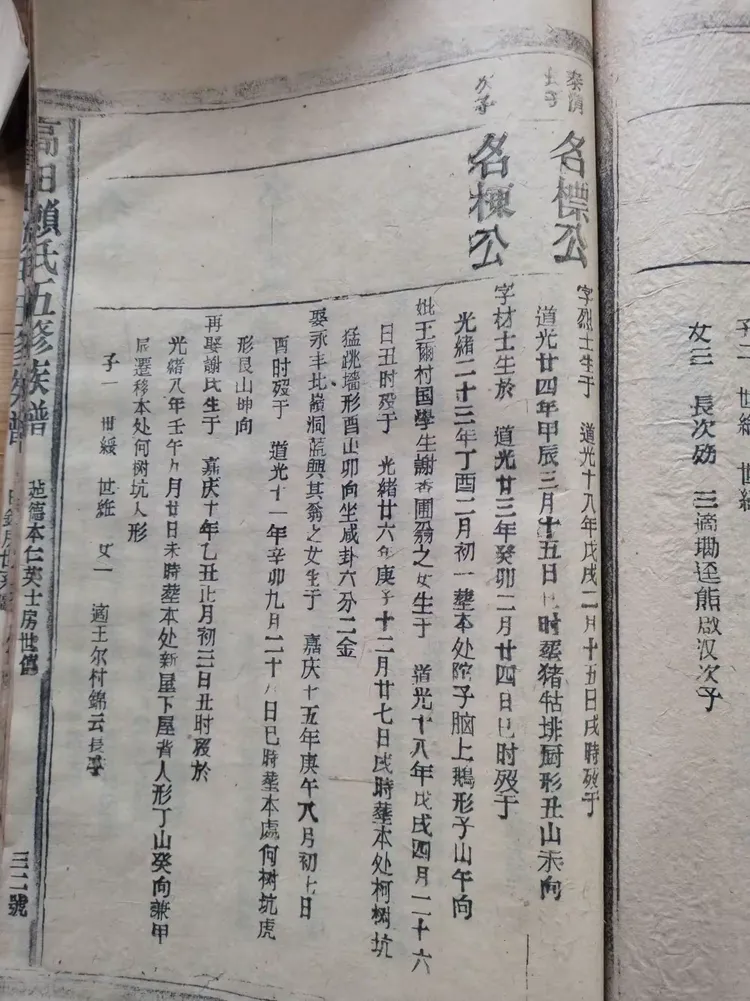 子二 世綸 世
女三 長次殇 三適
啟汉次子
泰清
長子
名標公
字烈士生于 道光十八年戊戌二月十五日戌時殁于
道光廿四年甲辰三月十五日巳时塟猪牯排厨形丑山未向
次子
名棟公
字材士生於 道光廿三年癸卯二月廿四日巳时殁于
光緒二十三年丁酉二月初一塟本处院子腦上鵝形子山午向
妣王爾村国學生謝香圃翁之女生于 道光十八年戊戌四月二十六
日丑时殁于 光緒廿六年庚子十二月廿七日戌時塟本处柯树坑
猛跳墙形酉山卯向坐咸卦六分二金
娶永丰北嶺洞藍興其翁之女生于 嘉庆十五年庚午八月初七日
酉时殁于 道光十一年辛卯九月二十八日巳時塟本處何树坑虎
形艮山坤向
再娶謝氏生于 嘉庆十年乙丑正月初三日丑时殁於
光緒八年壬午九月廿日未時塟本处新屋下屋背人形丁山癸向兼甲
后遷移本处何树坑人形
子一 世維 女一 適王尔村錦云長子
高田賴氏五修族譜
延德本仁英士房世傳
三二號